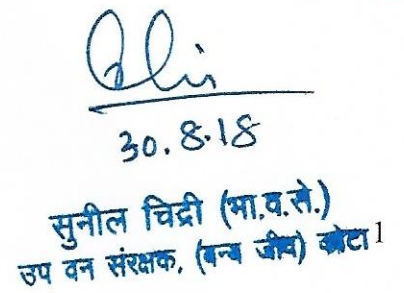 30.8.18
सुनील चिद्री (भा.व.से.)
उप वन संरक्षक, (वन्य जीव) कोटा 1